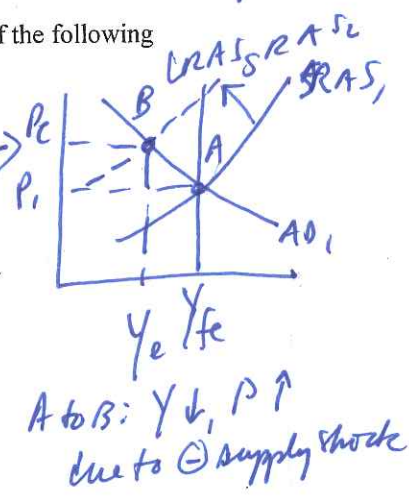 f the following
LRAS SRAS₂
SRAS₁
B
Pe
A
P₁
AD₁
Ye Yfe
A to B: Y↓, P↑
due to ⊖ supply shock